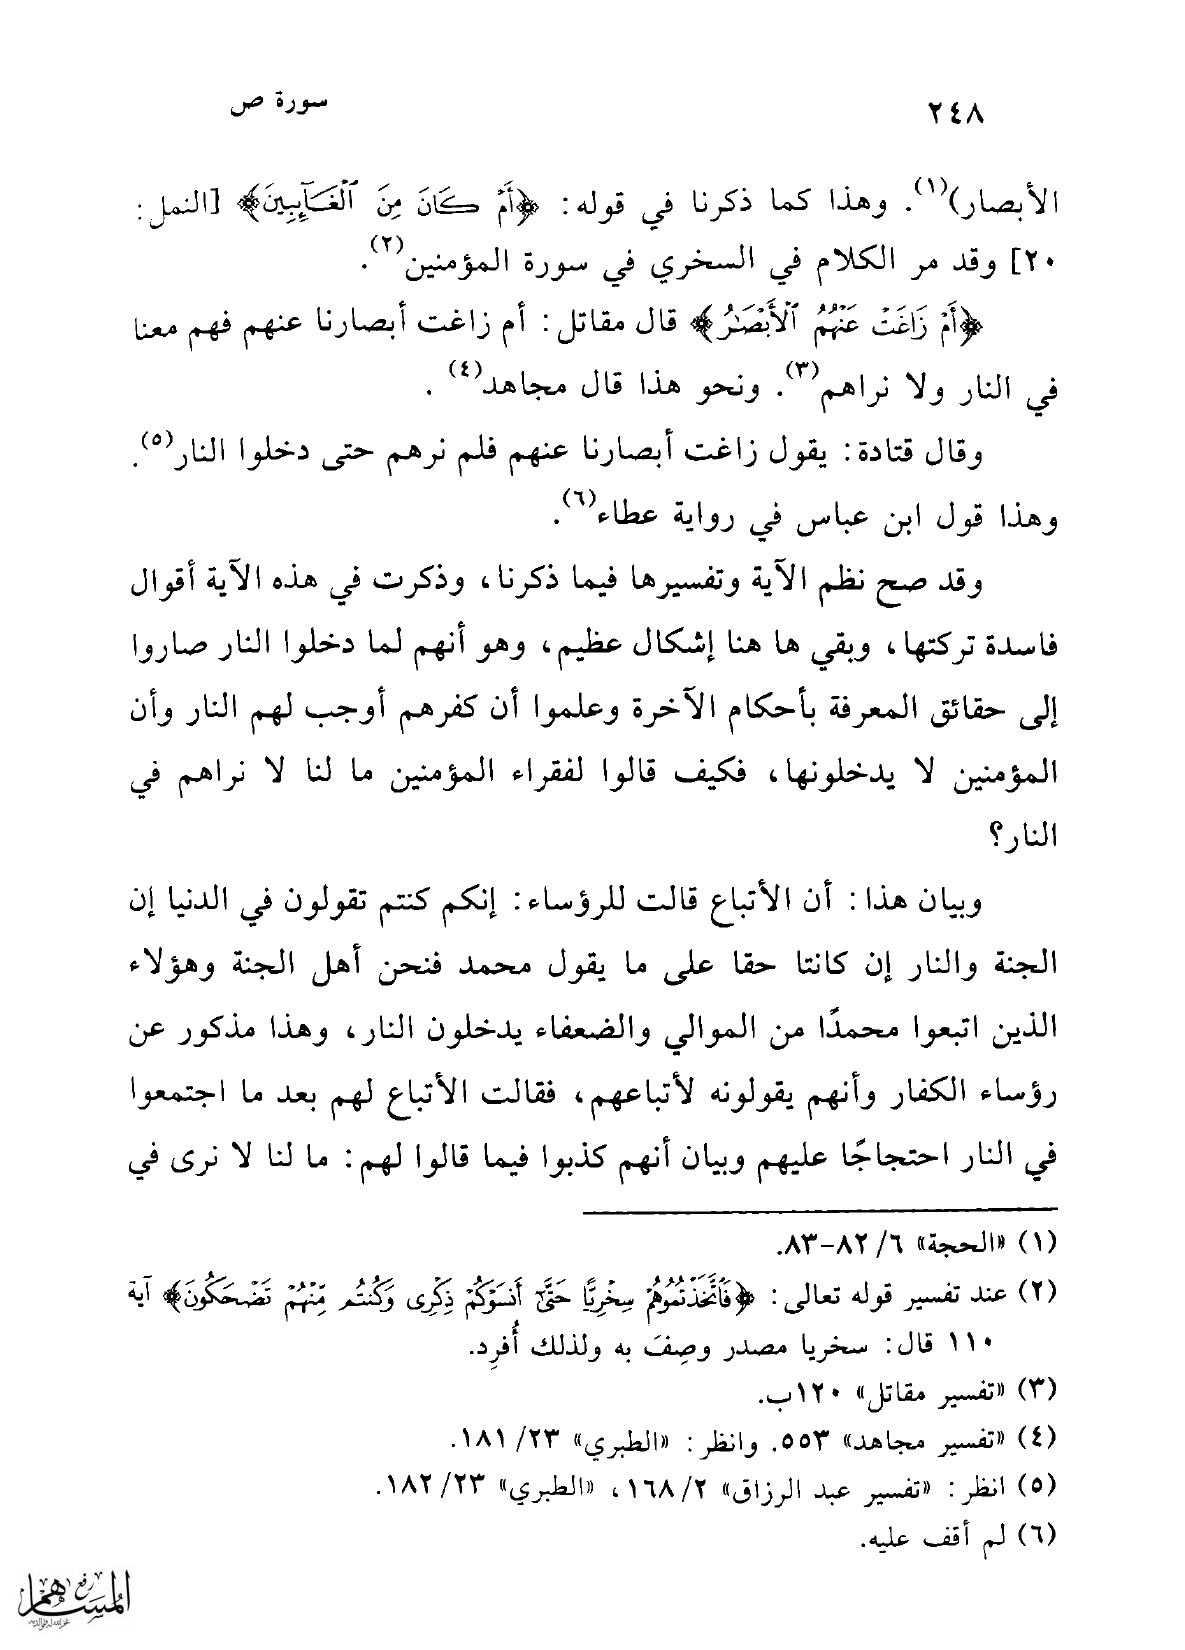 ٢٤٨
سورة ص
الأبصار)(١). وهذا كما ذكرنا في قوله: ﴿أَمْ كَانَ مِنَ ٱلْغَآئِبِينَ﴾ [النمل:
٢٠] وقد مر الكلام في السخري في سورة المؤمنين(٢).
﴿أَمْ زَاغَتْ عَنْهُمُ ٱلْأَبْصَٰرُ﴾ قال مقاتل: أم زاغت أبصارنا عنهم فهم معنا
في النار ولا نراهم(٣). ونحو هذا قال مجاهد(٤) .
وقال قتادة: يقول زاغت أبصارنا عنهم فلم نرهم حتى دخلوا النار(٥).
وهذا قول ابن عباس في رواية عطاء(٦).
وقد صح نظم الآية وتفسيرها فيما ذكرنا، وذكرت في هذه الآية أقوال
فاسدة تركتها، وبقي ها هنا إشكال عظيم، وهو أنهم لما دخلوا النار صاروا
إلى حقائق المعرفة بأحكام الآخرة وعلموا أن كفرهم أوجب لهم النار وأن
المؤمنين لا يدخلونها، فكيف قالوا لفقراء المؤمنين ما لنا لا نراهم في
النار؟
وبيان هذا: أن الأتباع قالت للرؤساء: إنكم كنتم تقولون في الدنيا إن
الجنة والنار إن كانتا حقا على ما يقول محمد فنحن أهل الجنة وهؤلاء
الذين اتبعوا محمدًا من الموالي والضعفاء يدخلون النار، وهذا مذكور عن
رؤساء الكفار وأنهم يقولونه لأتباعهم، فقالت الأتباع لهم بعد ما اجتمعوا
في النار احتجاجًا عليهم وبيان أنهم كذبوا فيما قالوا لهم: ما لنا لا نرى في
(١) «الحجة» ٦/ ٨٢-٨٣.
(٢) عند تفسير قوله تعالى: ﴿فَٱتَّخَذْتُمُوهُمْ سِخْرِيًّا حَتَّىٰٓ أَنسَوْكُمْ ذِكْرِى وَكُنتُم مِّنْهُمْ تَضْحَكُونَ﴾ آية
١١٠ قال: سخريا مصدر وصِفَ به ولذلك أُفرِد.
(٣) «تفسير مقاتل» ١٢٠ب.
(٤) «تفسير مجاهد» ٥٥٣. وانظر: «الطبري» ٢٣/ ١٨١.
(٥) انظر: «تفسير عبد الرزاق» ٢/ ١٦٨، «الطبري» ٢٣/ ١٨٢.
(٦) لم أقف عليه.
رفع
المساهم